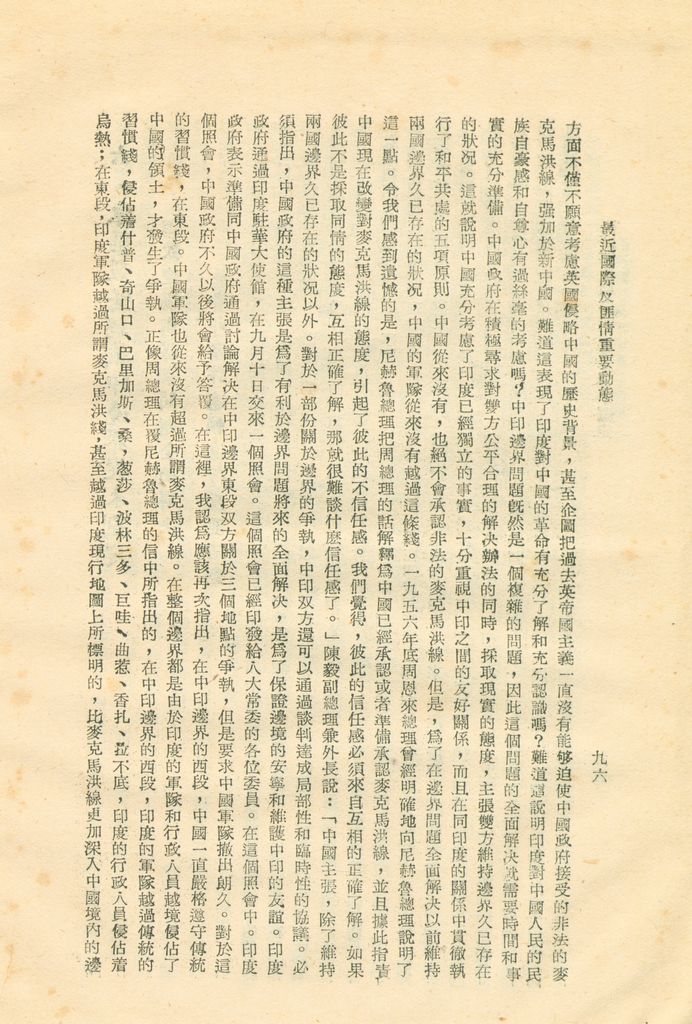 最近國際及匪情重要動態
九六
方面不僅不願意考慮英國侵略中國的歷史背景，甚至企圖把過去英帝國主義一直沒有能够迫使中國政府接受的非法的麥
克馬洪線，强加於新中國。難道這表現了印度對中國的革命有充分了解和充分認識嗎？難道這說明印度對中國人民的民
族自豪感和自尊心有過絲毫的考慮嗎？中印邊界問題旣然是一個複雜的問題，因此這個問題的全面解決就需要時間和事
實的充分準備。中國政府在積極尋求對雙方公平合理的解決辦法的同時，採取現實的態度，主張雙方維持邊界久已存在
的狀况。這就說明中國充分考慮了印度已經獨立的事實，十分重視中印之間的友好關係，而且在同印度的關係中貫徹執
行了和平共處的五項原則。中國從來沒有，也絕不會承認非法的麥克馬洪線。但是，爲了在邊界問題全面解決以前維持
兩國邊界久已存在的狀况，中國的軍隊從來沒有越過這條綫。一九五六年底周恩來總理曾經明確地向尼赫魯總理說明了
這一點。令我們感到遺憾的是，尼赫魯總理把周總理的話解釋爲中國已經承認或者準備承認麥克馬洪線，並且據此指責
中國現在改變對麥克馬洪線的態度，引起了彼此的不信任感。我們覺得，彼此的信任感必須來自互相的正確了解。如果
彼此不是採取同情的態度，互相正確了解，那就很難談什麼信任感了。」陳毅副總理兼外長說：「中國主張，除了維持
兩國邊界久已存在的狀况以外。對於一部份關於邊界的爭執，中印双方還可以通過談判達成局部性和臨時性的協議。必
須指出，中國政府的這種主張是爲了有利於邊界問題將來的全面解決，是爲了保證邊境的安寧和維護中印的友誼。印度
政府通過印度駐華大使館，在九月十日交來一個照會。這個照會已經印發給人大常委的各位委員。在這個照會中。印度
政府表示準備同中國政府通過討論解決在中印邊界東段双方關於三個地點的爭執，但是要求中國軍隊撤出朗久。對於這
個照會，中國政府不久以後將會給予答覆。在這裡，我認爲應該再次指出，在中印邊界的西段，中國一直嚴格遵守傳統
的習慣綫，在東段。中國軍隊也從來沒有超過所謂麥克馬洪線。在整個邊界都是由於印度的軍隊和行政人員越境侵佔了
中國的領土，才發生了爭執。正像周總理在覆尼赫魯總理的信中所指出的，在中印邊界的西段，印度的軍隊越過傳統的
習慣綫，侵佔着什普、奇山口、巴里加斯、桑，葱莎、波林三多、巨哇、曲惹、香扎、拉不底，印度的行政人員侵佔着
烏熱；在東段，印度軍隊越過所謂麥克馬洪綫，甚至越過印度現行地圖上所標明的，比麥克馬洪線更加深入中國境內的邊